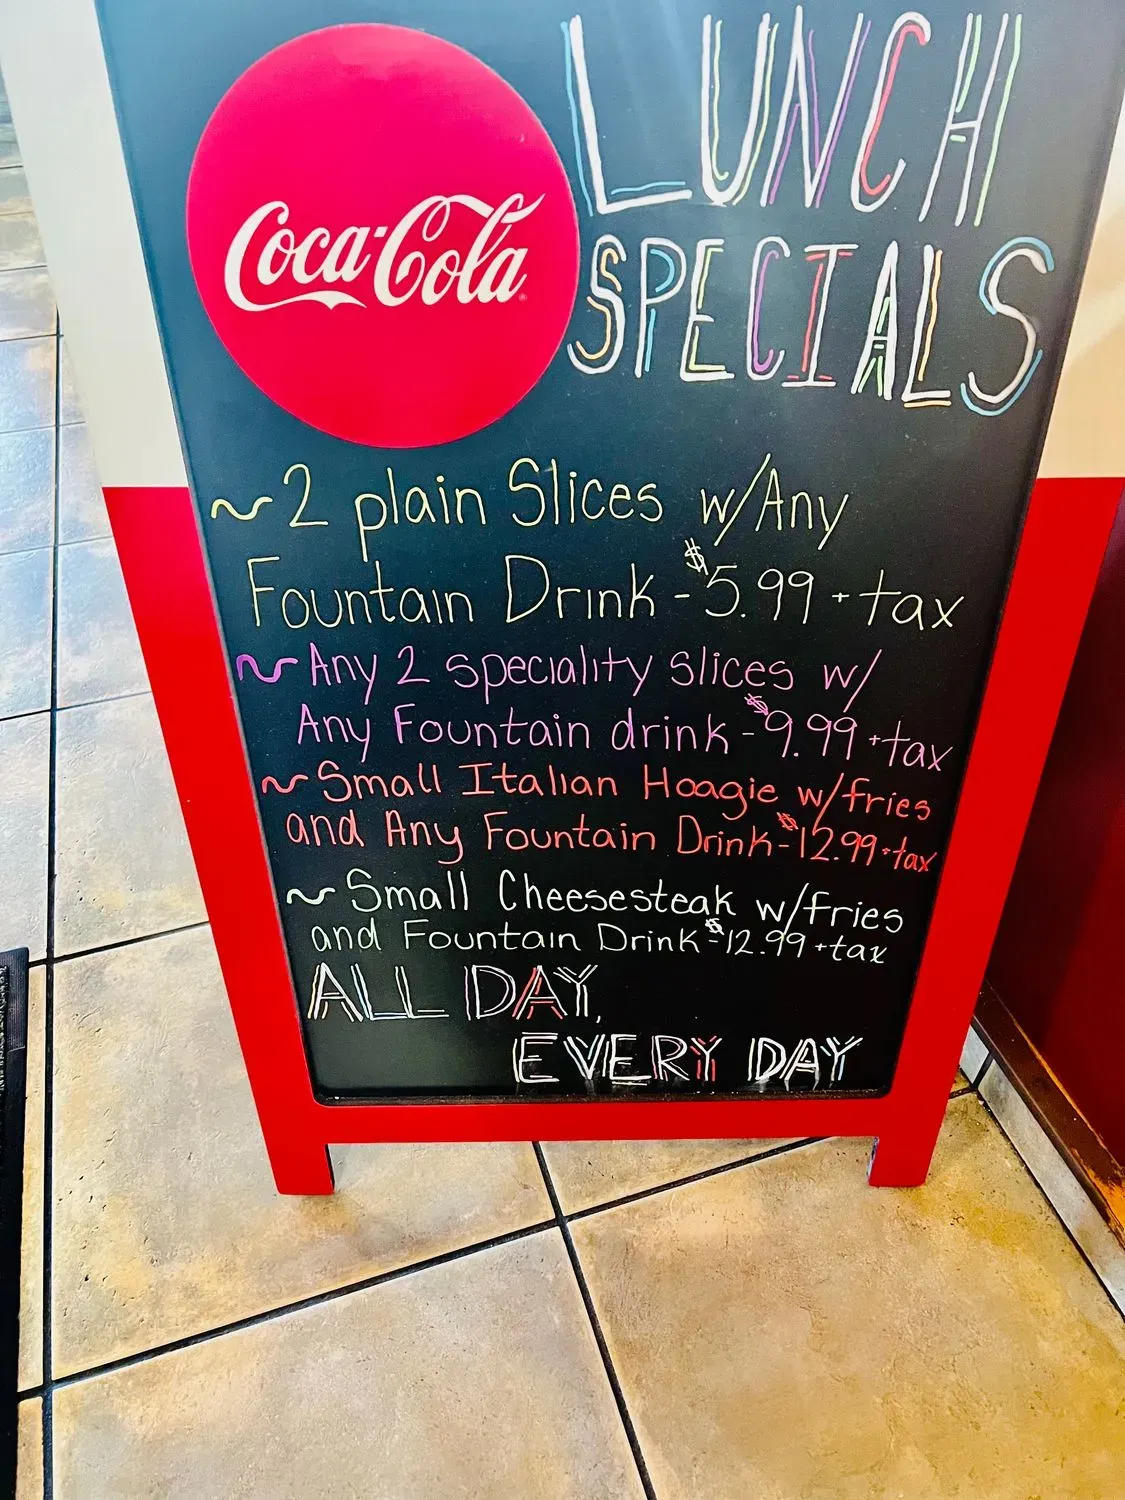 Coca-Cola
LUNCH
SPECIALS
~2 plain Slices w/Any
Fountain Drink - $5.99 + tax
~ Any 2 speciality slices w/
Any Fountain drink - $9.99 + tax
~ Small Italian Hoagie w/fries
and Any Fountain Drink - $12.99 + tax
~ Small Cheesesteak w/fries
and Fountain Drink - $12.99 + tax
ALL DAY,
EVERY DAY